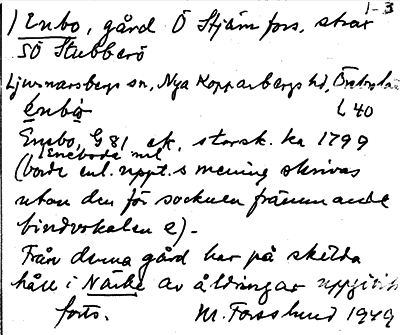 1-3
1) Enbo, gård Ö Stjärnfors, strax
SÖ Stubberö
Ljusnarsbergs sn, Nya Kopparbergs hd, Örebro län
Enbo L 40
Enebo, G 81 ek, storsk. ka 1799
Enebode mtl
(borde enl. uppt:s mening skrivas
utan den för socknen främmande
bindvokalen e).-
Från denna gård har på skilda
håll i Närke av åldringar uppgivits
forts. M. Forsslund 1949